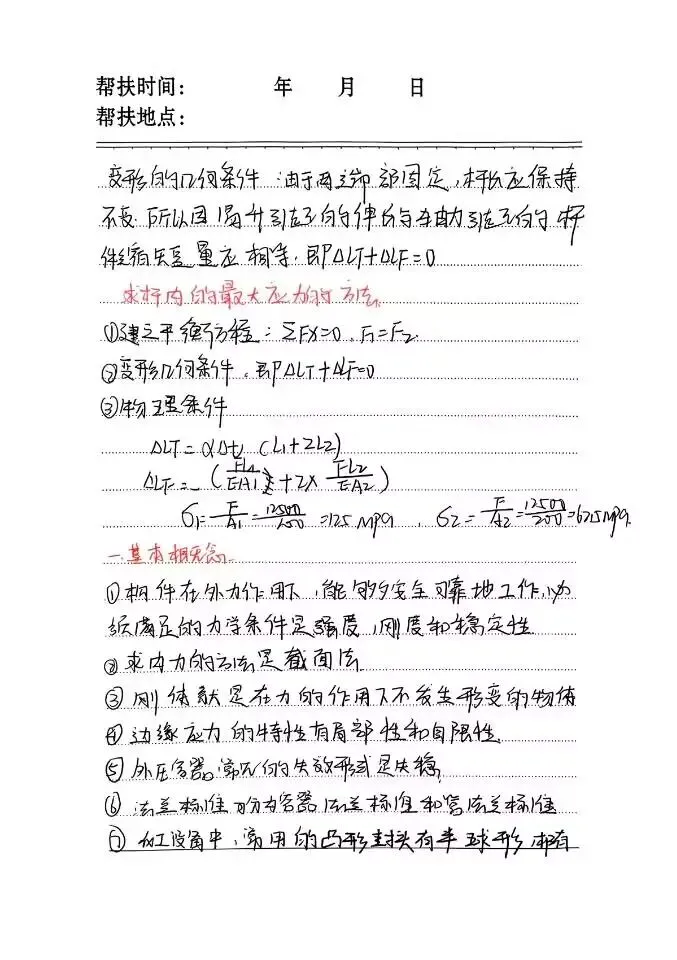 帮扶时间： 年 月 日
帮扶地点：
变形的几何条件 由于两端部固定，杆长应保持
不变 所以因温升引起的伸长与轴力引起的杆
件缩短量应相等，即ΔLT+ΔLF=0
求杆内的最大应力的方法
①建立平衡方程：ΣFX=0，F1=F2
②变形几何条件，即ΔLT+ΔLF=0
③物理条件
ΔLT=αΔt (L1+2L2)
ΔLF=-(FL1/EA1+2×FL2/EA2)
σ1=F/A1=12500/100=125MPa，σ2=F/A2=12500/200=62.5MPa
一.基本概念
①构件在外力作用下，能够安全可靠地工作，必
须满足的力学条件是强度，刚度和稳定性
②求内力的方法是截面法
③刚体就是在力的作用下不发生形变的物体
④边缘应力的特性有局部性和自限性
⑤外压容器常见的失效形式是失稳
⑥法兰标准可分为容器法兰标准和管法兰标准
⑦化工设备中，常用的凸形封头有半球形，椭